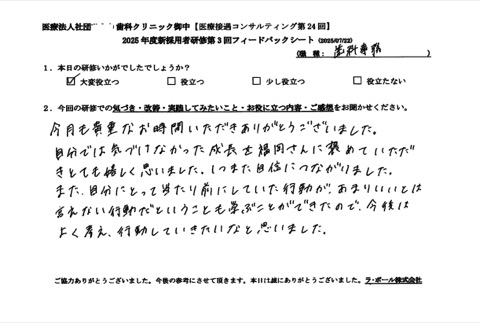 医療法人社団 歯科クリニック御中【医療接遇コンサルティング第24回】
2025年度新採用者研修第3回フィードバックシート（2025/07/22）
（職 種： 歯科専務 ）
1．本日の研修いかがでしたでしょうか？
☑ 大変役立つ □ 役立つ □ 少し役立つ □ 役立たない
2．今回の研修での気づき・改善・実践してみたいこと・お役に立つ内容・ご感想をお聞かせください。
今月も貴重なお時間いただきありがとうございました。
自分では気づけなかった成長を福岡さんに褒めていただ
きとても嬉しく思いました。 また自信につながりました。
また、自分にとって当たり前にしていた行動が、あまりいいとは
言えない行動だということも学ぶことができたので、今後は
よく考え、行動していきたいなと思いました。
ご協力ありがとうございました。今後の参考にさせて頂きます。本日は誠にありがとうございました。ラ・ポール株式会社